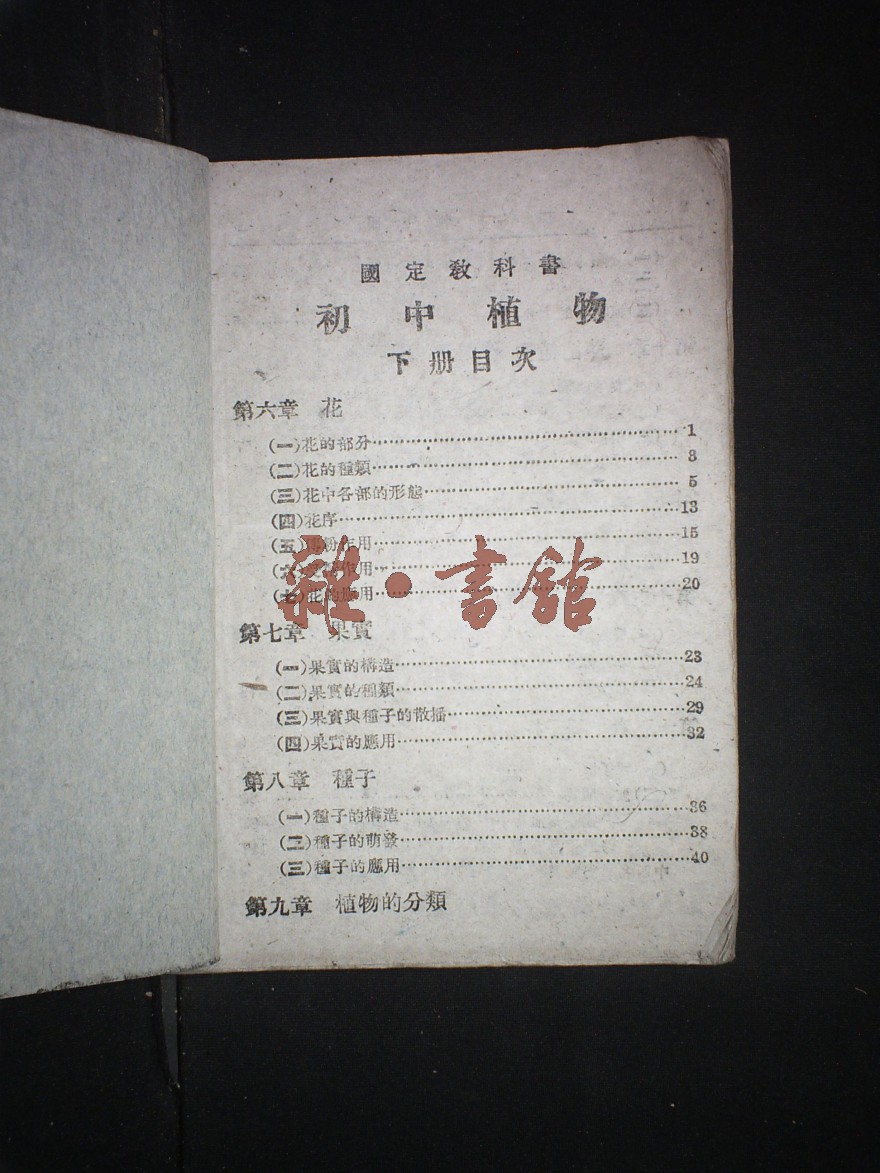 國定教科書
初中植物
下册目次
第六章 花
(一)花的部分 1
(二)花的種類 3
(三)花中各部的形態 5
(四)花序 13
(五)粉作用 15
(六)作用 19
(七)花的應用 20
雜·書館
第七章 果實
(一)果實的構造 23
(二)果實的種類 24
(三)果實與種子的散播 29
(四)果實的應用 32
第八章 種子
(一)種子的構造 36
(二)種子的萌發 38
(三)種子的應用 40
第九章 植物的分類